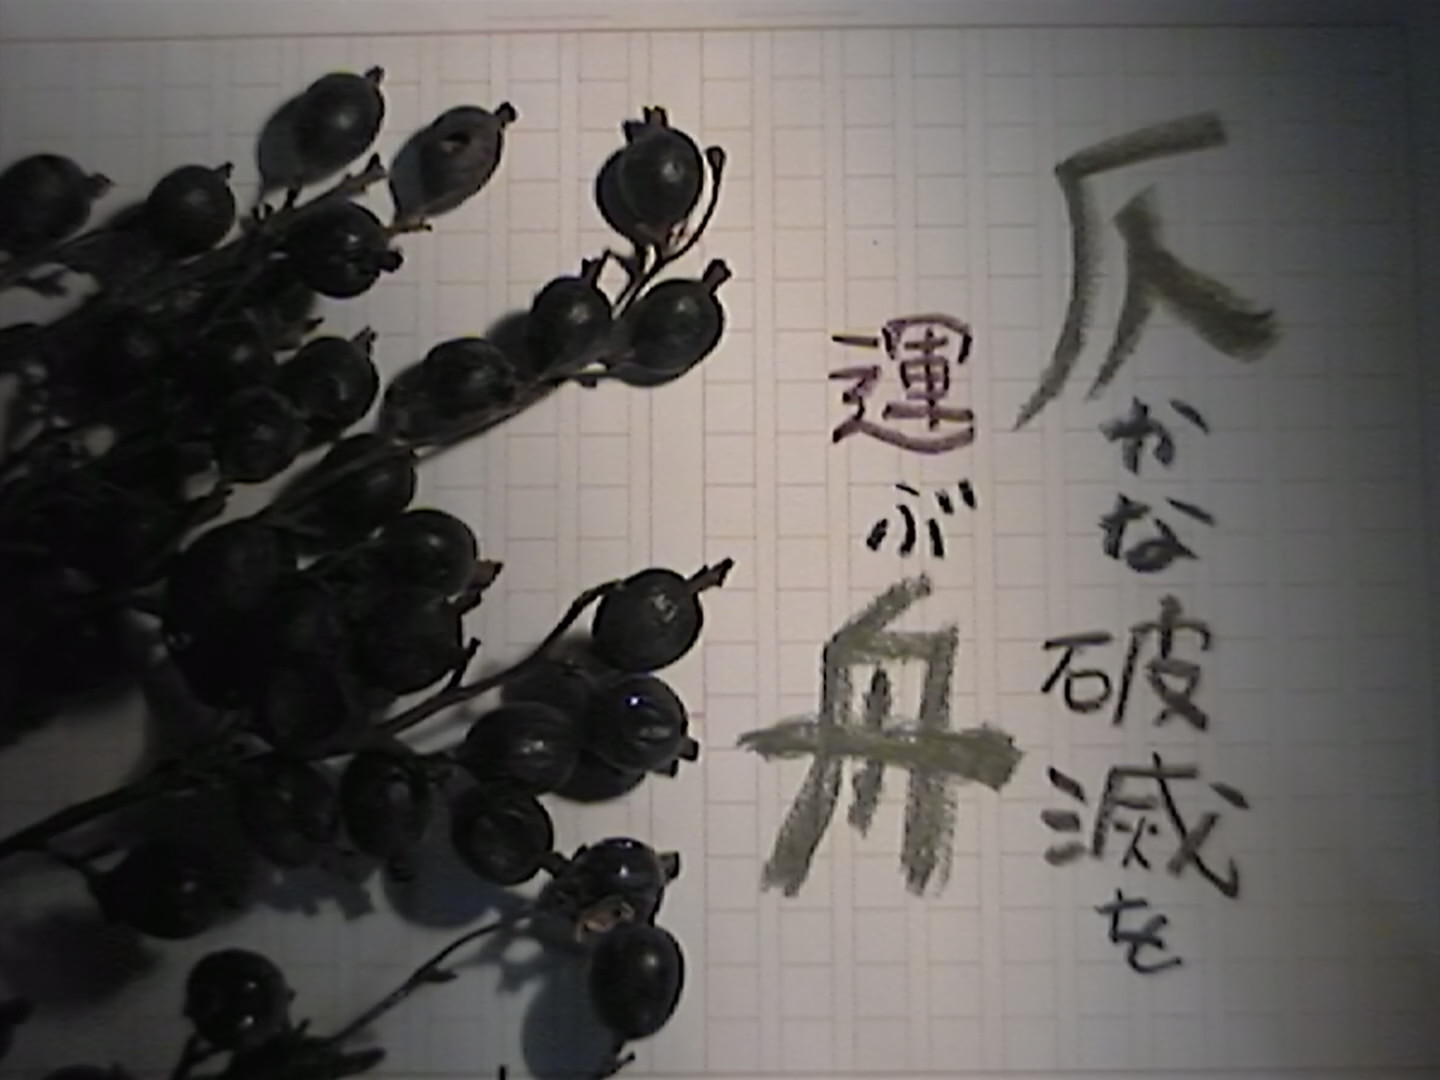 仄かな破滅を
運ぶ舟